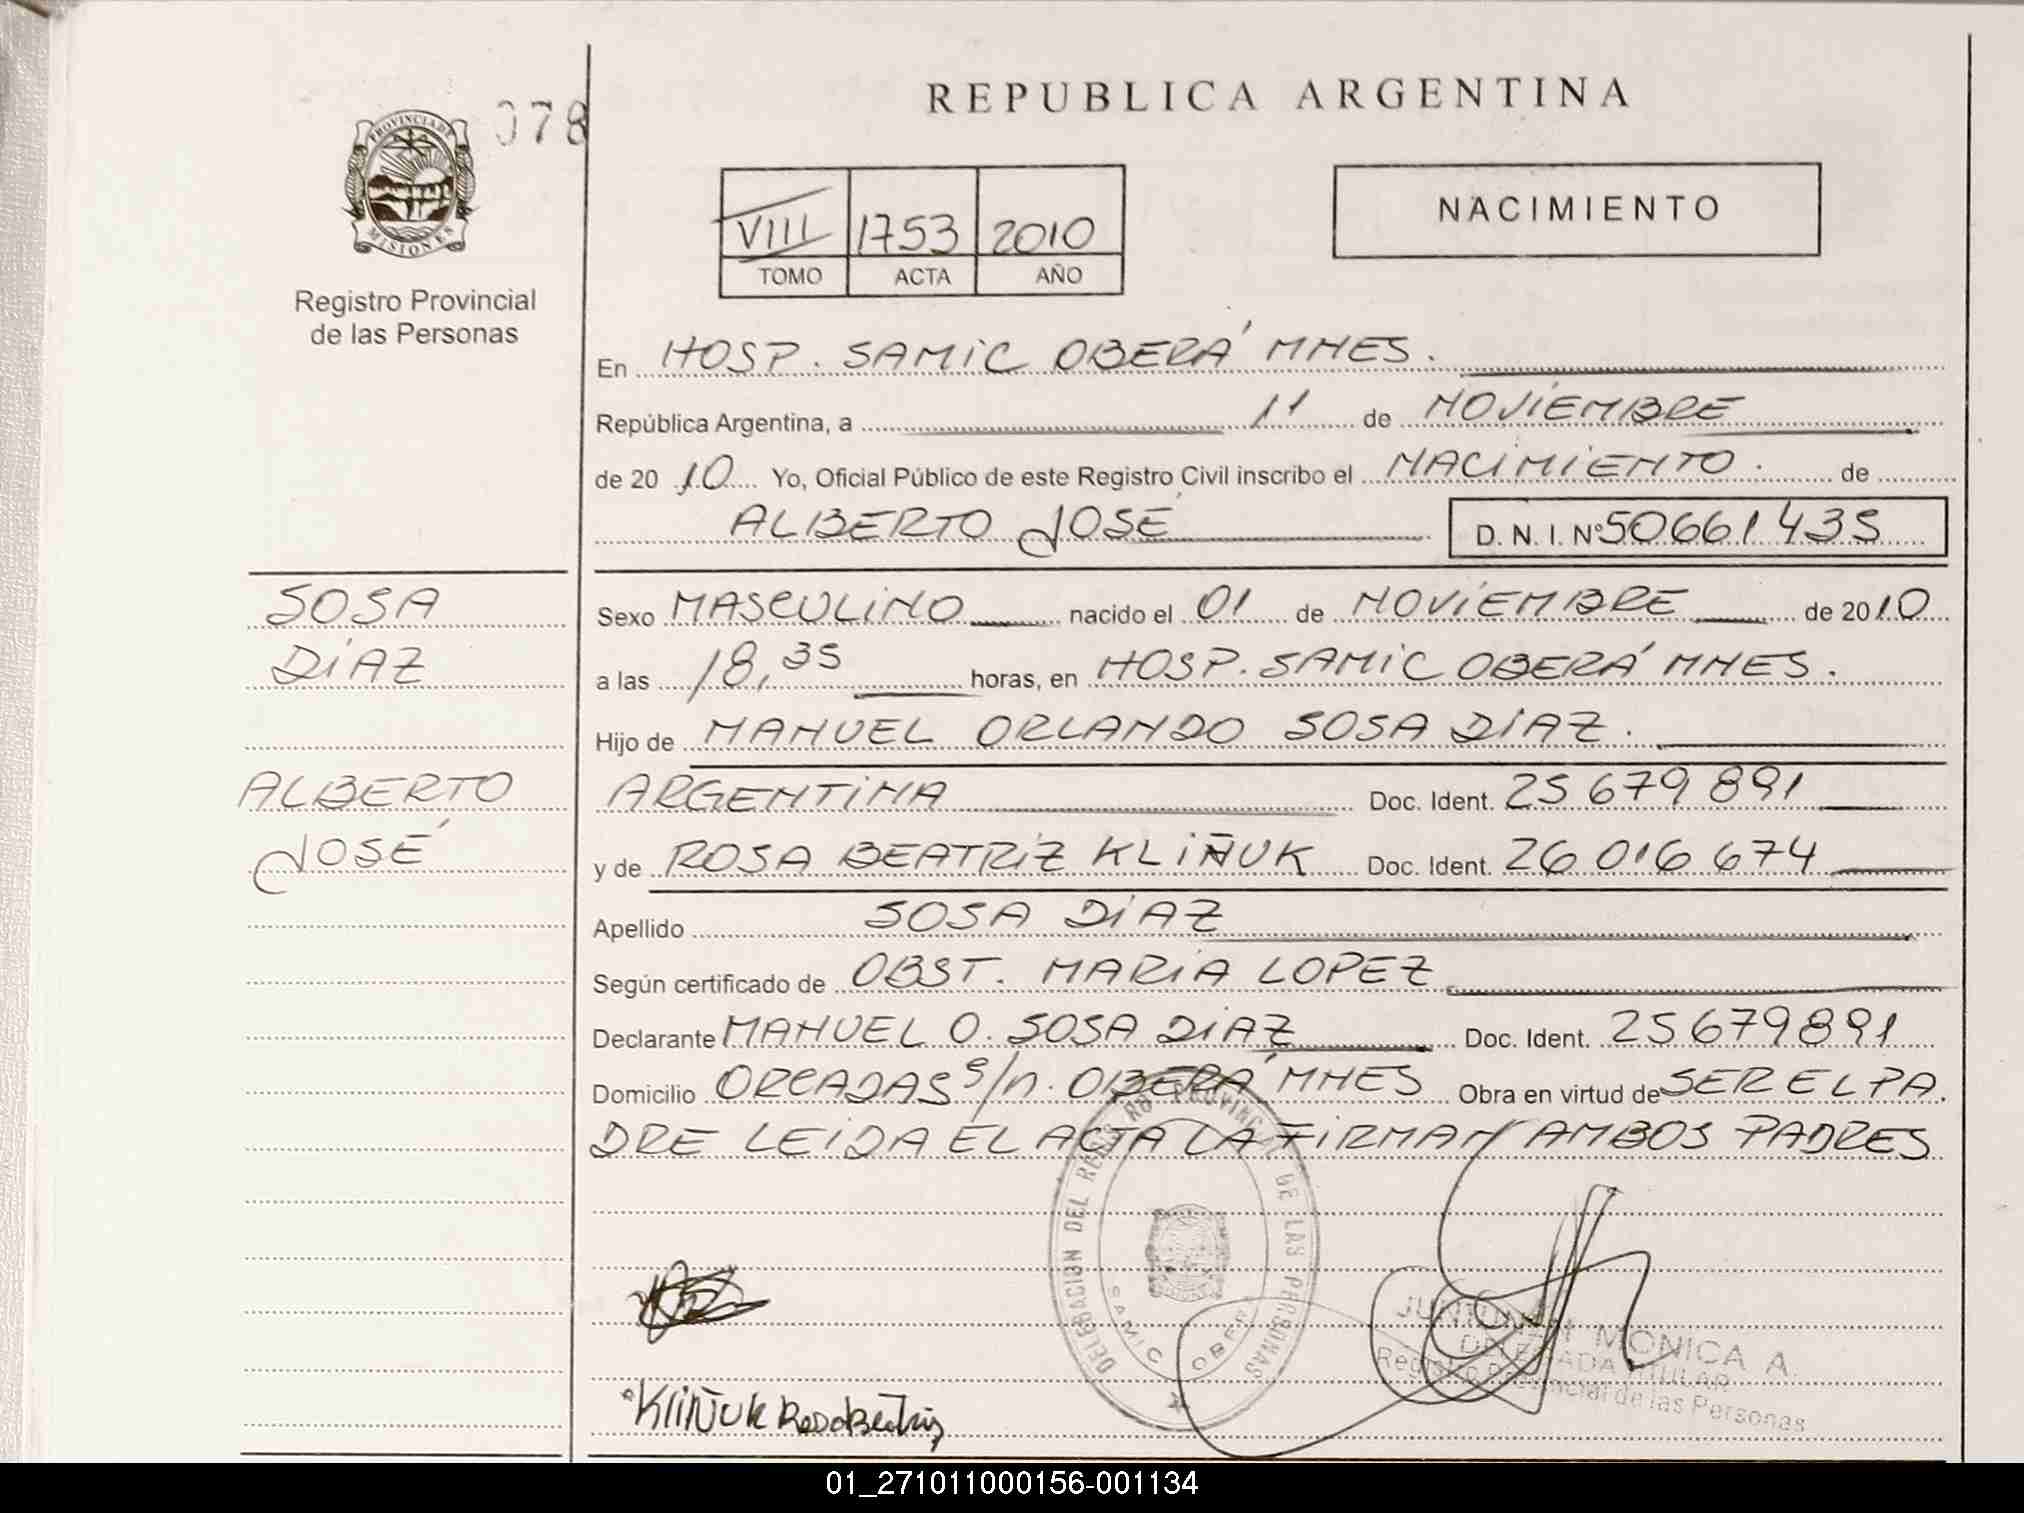 078
PROVINCIA DE
MISIONES
Registro Provincial
de las Personas
REPUBLICA ARGENTINA
VIII 1753 2010
TOMO ACTA AÑO
NACIMIENTO
En HOSP. SAMIC OBERÁ MNES.
República Argentina, a 11 de NOVIEMBRE
de 2010 Yo, Oficial Público de este Registro Civil inscribo el NACIMIENTO. de
ALBERTO JOSÉ D. N. I. Nº 50661435
SOSA
DIAZ
ALBERTO
JOSÉ
Sexo MASCULINO nacido el 01 de NOVIEMBRE de 2010
a las 18,35 horas, en HOSP. SAMIC OBERÁ MNES.
Hijo de MANUEL ORLANDO SOSA DIAZ.
ARGENTINA Doc. Ident. 25 679 891
y de ROSA BEATRIZ KLIÑUK Doc. Ident. 26 016 674
Apellido SOSA DIAZ
Según certificado de OBST. MARIA LOPEZ
Declarante MANUEL O. SOSA DIAZ Doc. Ident. 25679891
Domicilio ORCADAS s/n. OBERÁ MNES Obra en virtud de SER EL PA.
DRE LEIDA EL ACTA LA FIRMAN AMBOS PADRES
DELEGACION DEL REGISTRO PROVINCIAL DE LAS PERSONAS
SAMIC OBERA
MONICA A.
DELEGADA TITULAR
Registro Provincial de las Personas
Kliñuk Rosa Beatriz
01_271011000156-001134